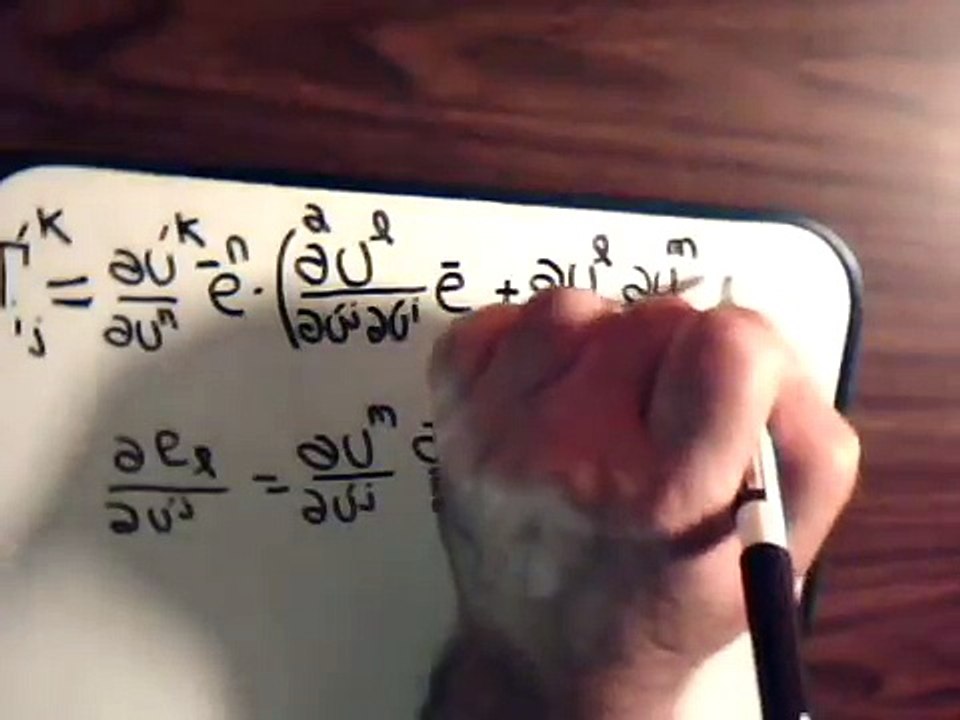 Γ'ᵏᵢⱼ = ∂U'ᵏ/∂Uⁿ ēⁿ · (∂²Uˡ/∂U'ʲ∂U'ⁱ ē + ∂Uˡ ∂Uᵐ
∂eₗ/∂U'ʲ = ∂Uᵐ/∂U'ʲ